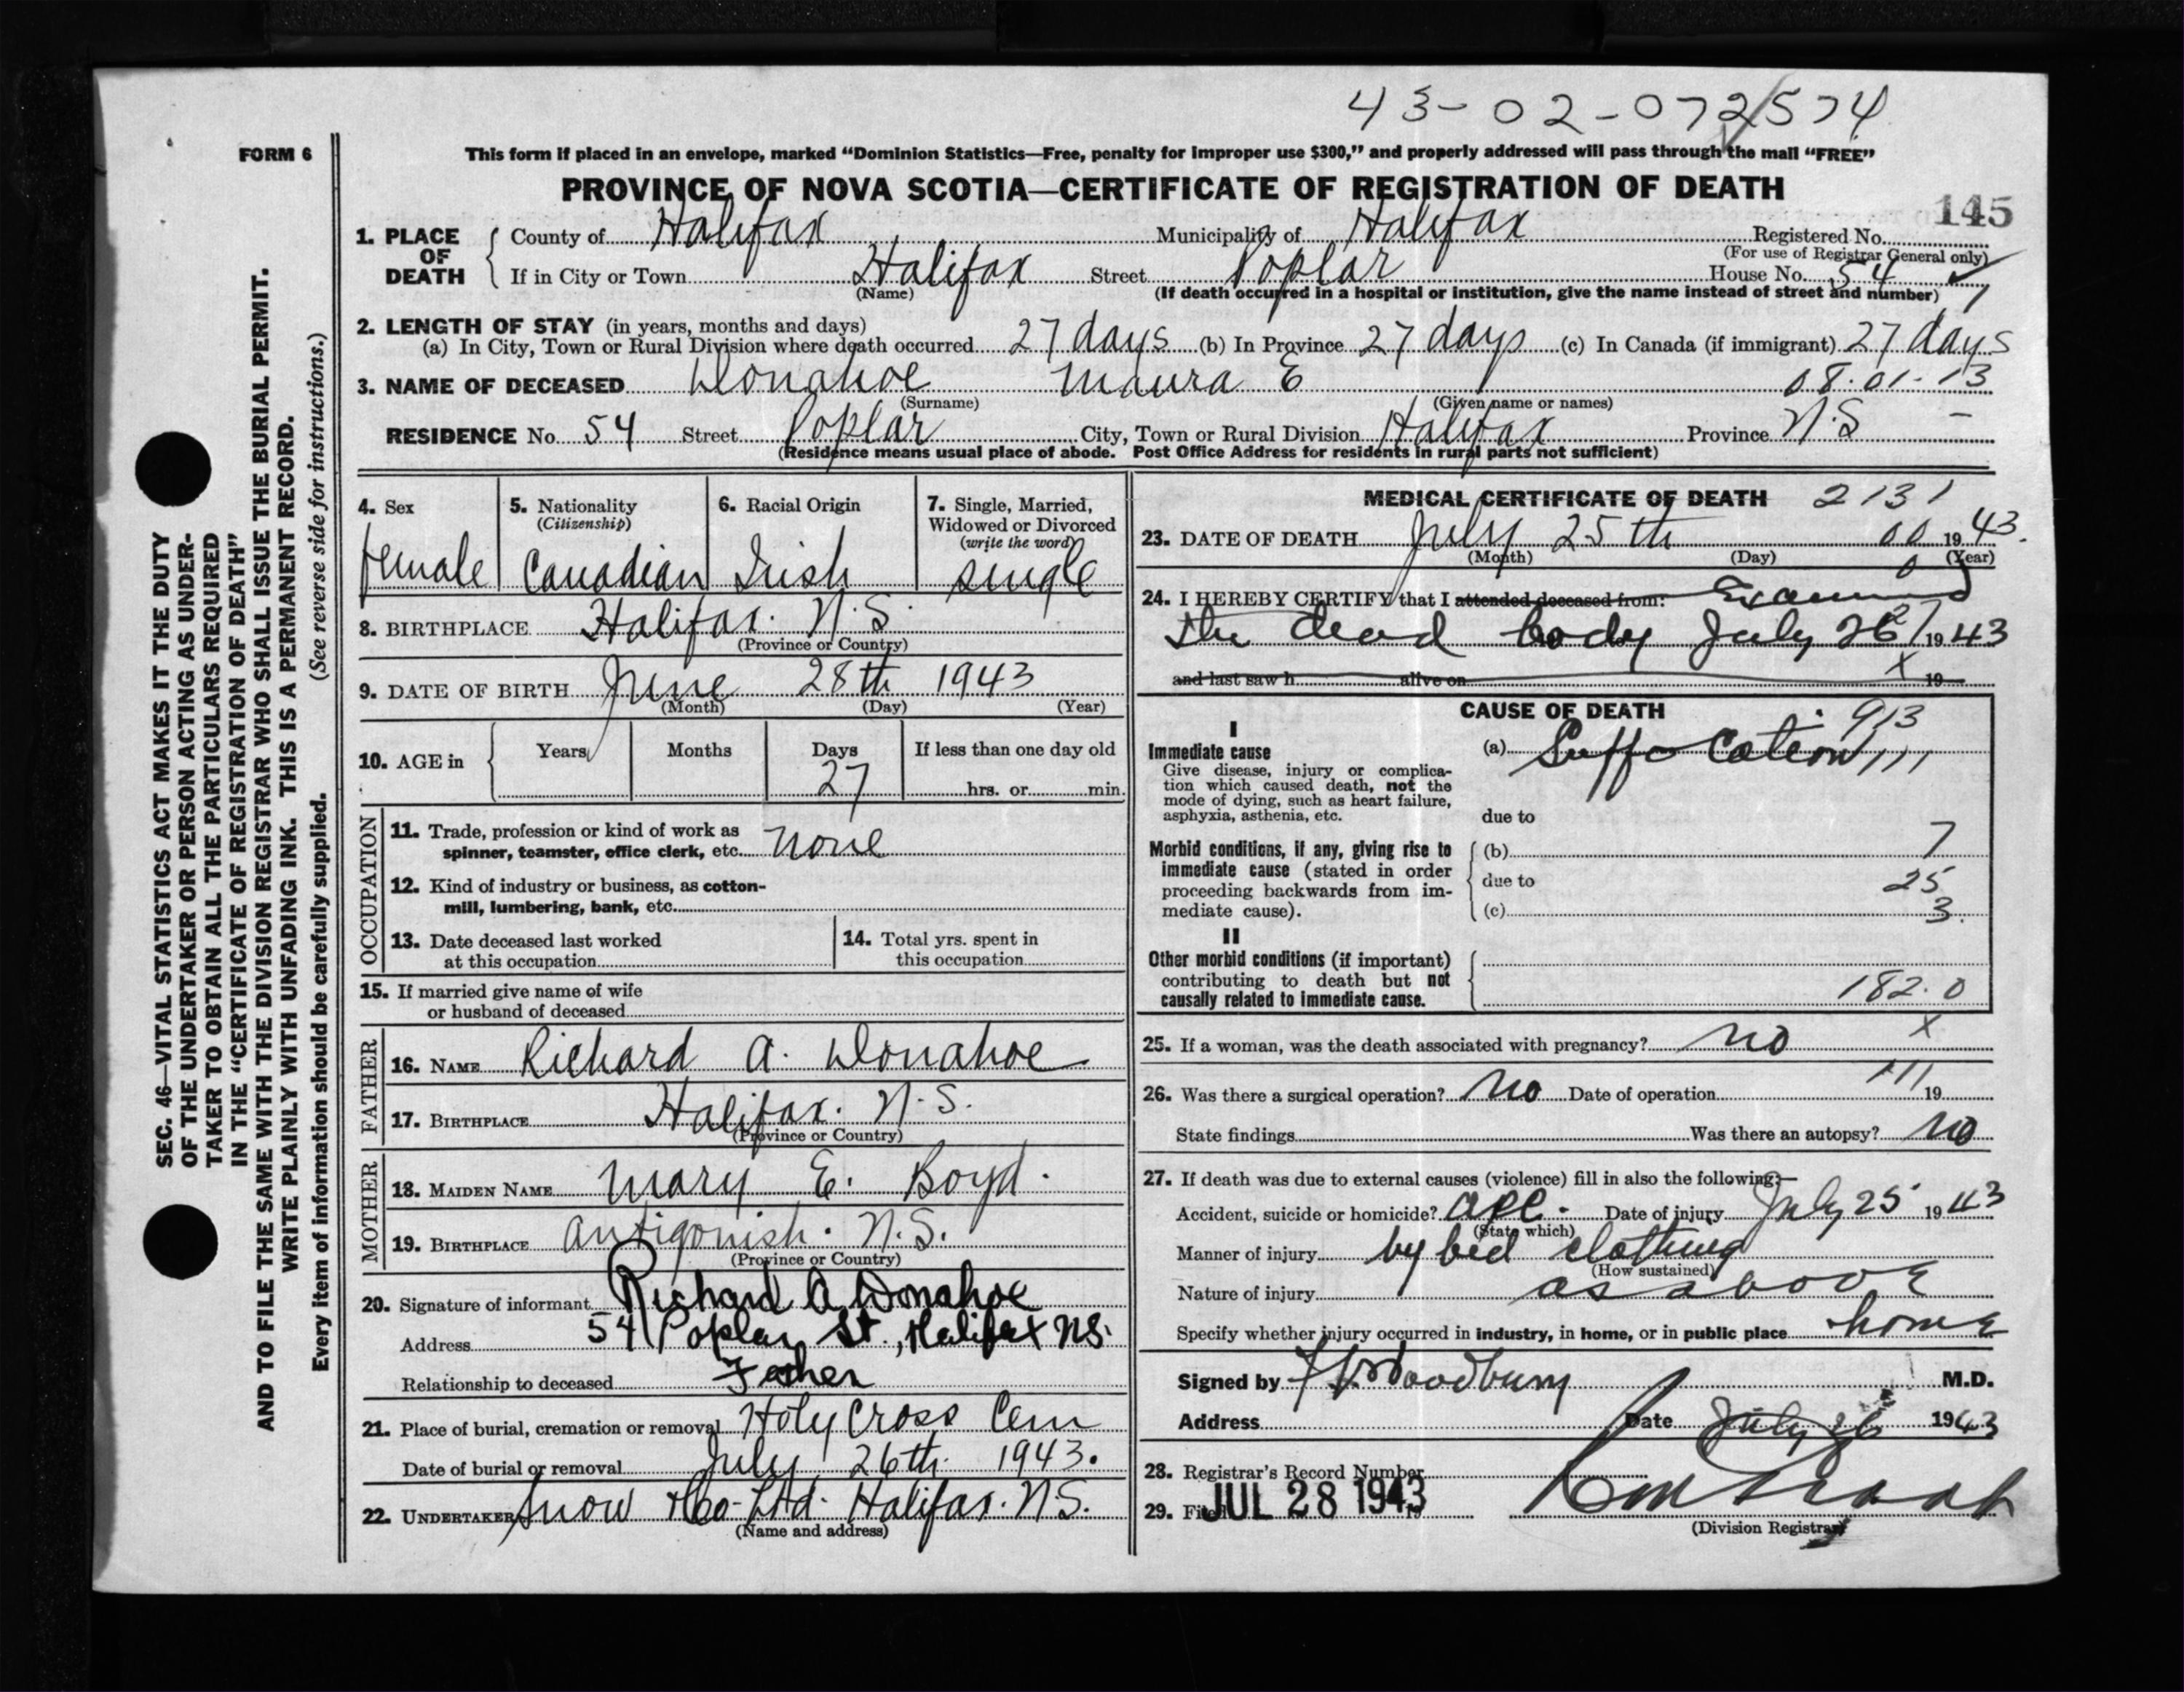 43-02-072574
FORM 6
This form if placed in an envelope, marked “Dominion Statistics—Free, penalty for improper use $300,” and properly addressed will pass through the mail “FREE”
PROVINCE OF NOVA SCOTIA—CERTIFICATE OF REGISTRATION OF DEATH
145
1. PLACE OF DEATH County of Halifax Municipality of Halifax Registered No.
(For use of Registrar General only)
If in City or Town Halifax Street Poplar House No. 54
(Name) (If death occurred in a hospital or institution, give the name instead of street and number)
2. LENGTH OF STAY (in years, months and days)
(a) In City, Town or Rural Division where death occurred 27 days (b) In Province 27 days (c) In Canada (if immigrant) 27 days
3. NAME OF DECEASED Donahoe Maura E 08.01-13
(Surname) (Given name or names)
RESIDENCE No. 54 Street Poplar City, Town or Rural Division Halifax Province N.S —
(Residence means usual place of abode. Post Office Address for residents in rural parts not sufficient)
4. Sex
female
5. Nationality
(Citizenship)
Canadian
6. Racial Origin
Irish
7. Single, Married,
Widowed or Divorced
(write the word)
single
8. BIRTHPLACE Halifax. N.S.
(Province or Country)
9. DATE OF BIRTH June 28th 1943
(Month) (Day) (Year)
10. AGE in Years Months Days If less than one day old
27 hrs. or min.
OCCUPATION
11. Trade, profession or kind of work as
spinner, teamster, office clerk, etc. None
12. Kind of industry or business, as cotton-
mill, lumbering, bank, etc.
13. Date deceased last worked
at this occupation
14. Total yrs. spent in
this occupation
15. If married give name of wife
or husband of deceased
FATHER
16. NAME Richard A. Donahoe
17. BIRTHPLACE Halifax. N.S.
(Province or Country)
MOTHER
18. MAIDEN NAME Mary E. Boyd.
19. BIRTHPLACE Antigonish. N.S.
(Province or Country)
20. Signature of informant Richard A Donahoe
Address 54 Poplar St., Halifax NS.
Relationship to deceased Father
21. Place of burial, cremation or removal Holy Cross Cem
Date of burial or removal July 26th. 1943.
22. UNDERTAKER Snow & Co. Ltd. Halifax. N.S.
(Name and address)
MEDICAL CERTIFICATE OF DEATH 2131
23. DATE OF DEATH July 25th 00 1943.
(Month) (Day) (Year)
0
24. I HEREBY CERTIFY that I attended deceased from: Examined
the dead body July 26 1943
and last saw h alive on x 19
CAUSE OF DEATH 913
I
Immediate cause
Give disease, injury or complica-
tion which caused death, not the
mode of dying, such as heart failure,
asphyxia, asthenia, etc.
(a) Suffocation
due to
Morbid conditions, if any, giving rise to
immediate cause (stated in order
proceeding backwards from im-
mediate cause).
(b) 7
due to 25
(c) 3.
II
Other morbid conditions (if important)
contributing to death but not
causally related to immediate cause.
182.0
25. If a woman, was the death associated with pregnancy? no x
26. Was there a surgical operation? no Date of operation 19
State findings Was there an autopsy? no
27. If death was due to external causes (violence) fill in also the following:—
Accident, suicide or homicide? acc. Date of injury July 25 1943
(State which)
Manner of injury by bed clothing
(How sustained)
Nature of injury as above
Specify whether injury occurred in industry, in home, or in public place home
Signed by Woodbury M.D.
Address Date July 26 1943
28. Registrar's Record Number
29. Filed JUL 28 1943
(Division Registrar)
SEC. 46—VITAL STATISTICS ACT MAKES IT THE DUTY
OF THE UNDERTAKER OR PERSON ACTING AS UNDER-
TAKER TO OBTAIN ALL THE PARTICULARS REQUIRED
IN THE “CERTIFICATE OF REGISTRATION OF DEATH”
AND TO FILE THE SAME WITH THE DIVISION REGISTRAR WHO SHALL ISSUE THE BURIAL PERMIT.
WRITE PLAINLY WITH UNFADING INK. THIS IS A PERMANENT RECORD.
Every item of information should be carefully supplied. (See reverse side for instructions.)